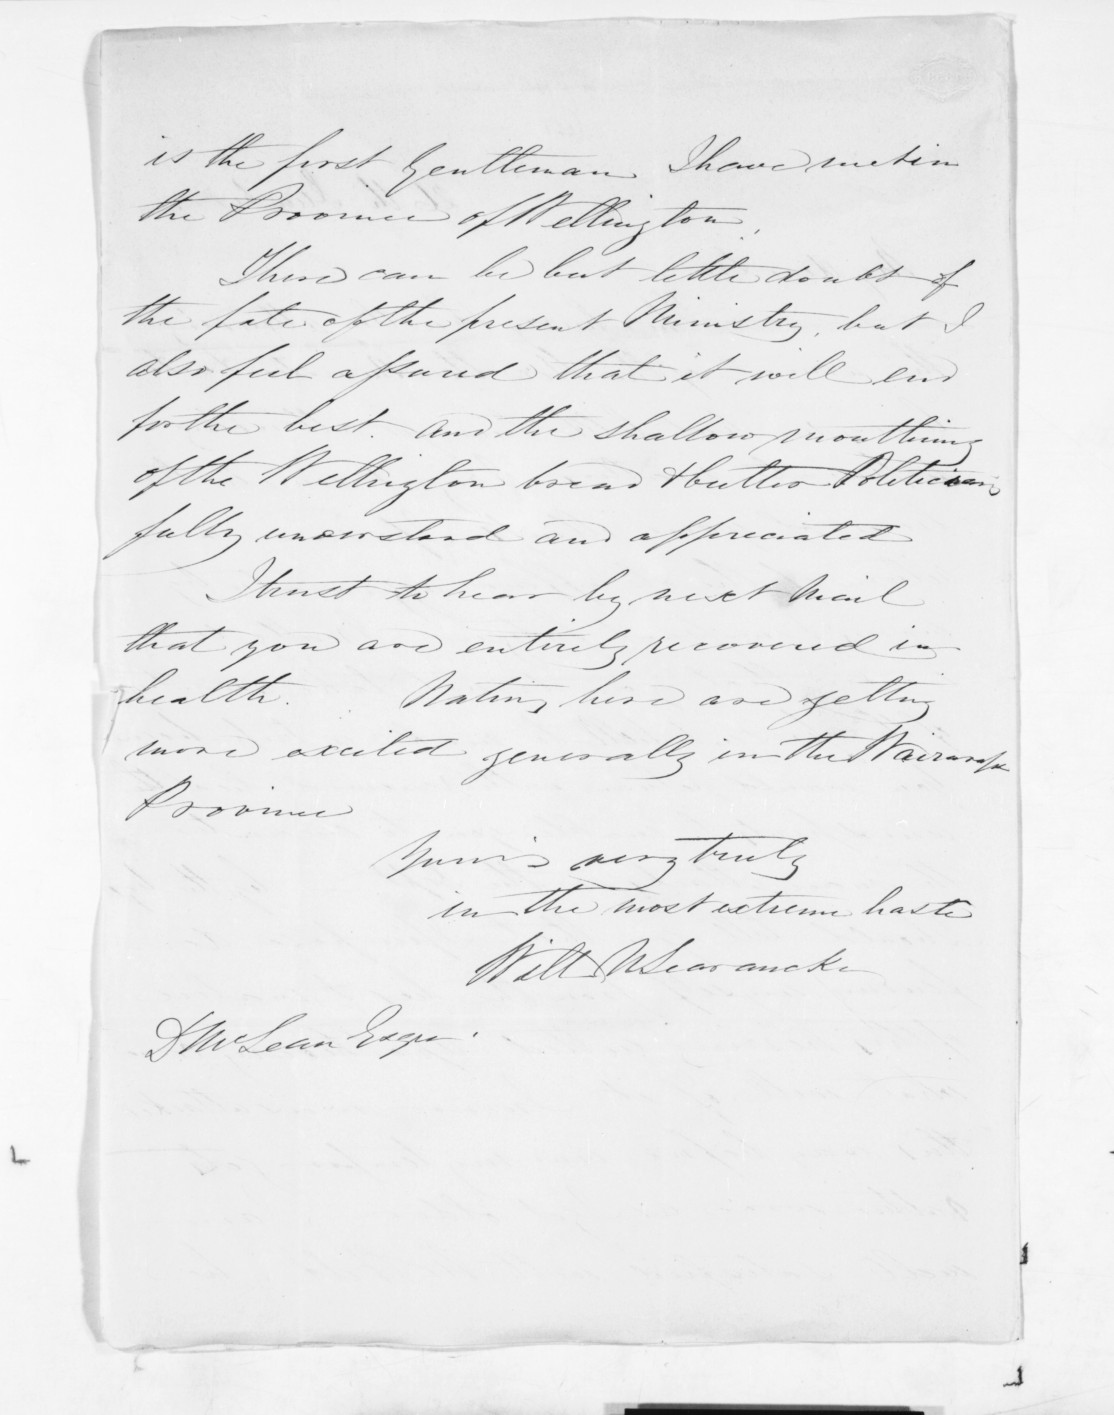 is the first Gentleman I have met in
the Province of Wellington.
There can be but little doubt of
the fate of the present Ministry, but I
also feel assured that it will end
for the best. and the shallow mouthing
of the Wellington bread & butter Politicians
fully understood and appreciated
I trust to hear by next Mail
that you are entirely recovered in
health. Natives here are getting
more excited generally in the Wairarapa
Province
Yours very truly
in the most extreme haste
Willm N Searancke
D McLean Esqre.